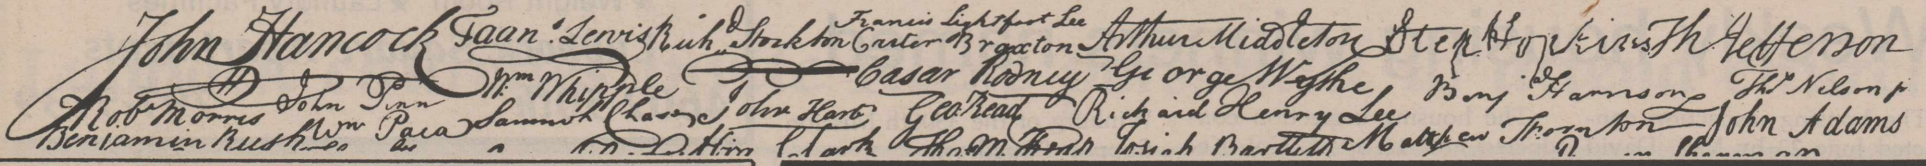 John Hancock Faan.s Lewis Rich.d Stockton Francis Lightfoot Lee Carter Braxton Arthur Middleton Step Hopkins Th Jefferson
Rob Morris John Pinn Wm Whipple Casar Rodney George Wythe Benj Harrison Tho Nelson jr
Benjamin Rush Wm Paca Sammuel Chase John Hart Geo Read Rickard Henry Lee Matthew Thornton John Adams
Clark Tho M. Kean Josiah Bartlett